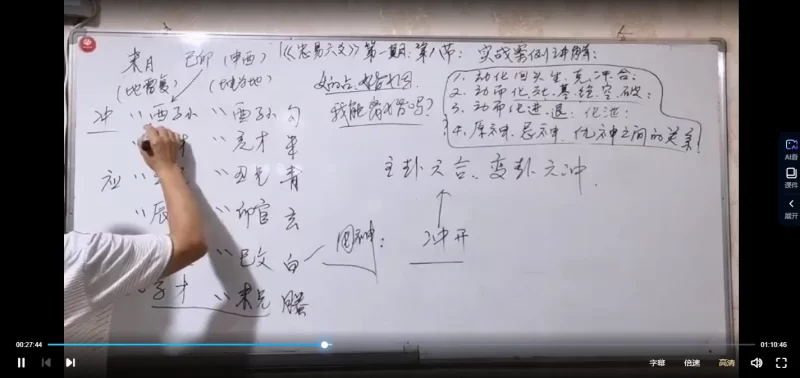 《忠易六爻》第一期:第八节: 实战案例讲解:
未月 己卯 (申酉)
(地雷复) (坤为地)
我能离婚吗?
1. 动化回头生、克、冲、合;
2. 动而化、墓、绝、空、破;
3. 动而化进、退、化泄;
4. 原神、忌神、仇神之间的关系!
冲 〃酉子水 〃酉子孙 勾
〃亥才
应 〃丑兄 青
〃辰 〃卯官 玄
〃巳父 白
子才 〃未兄 螣
主卦六合、变卦六冲.
用神: 冲开
00:27:44
01:10:46
字幕 倍速 高清
AI看
课件
展开